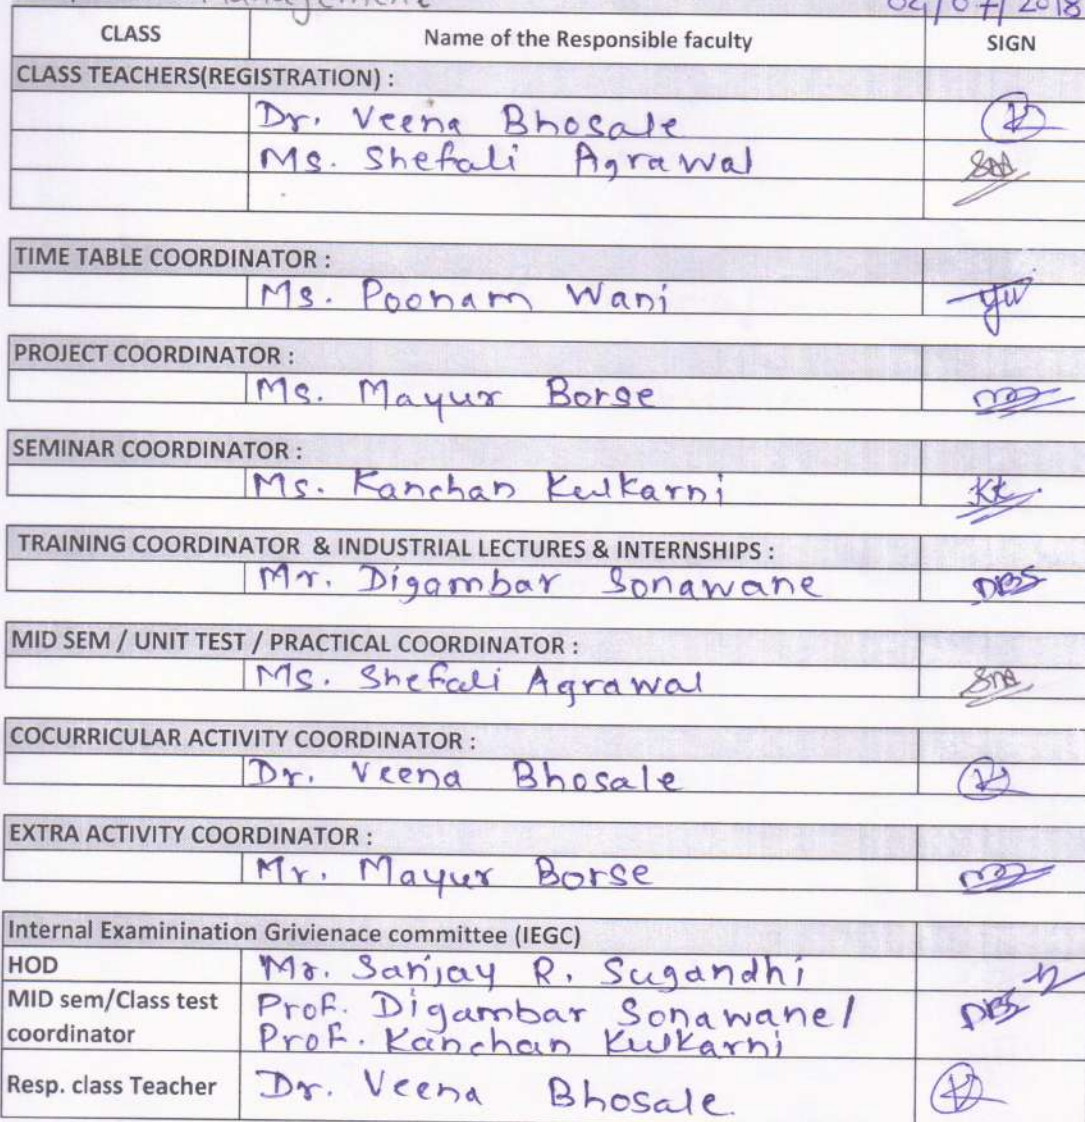 Management 02/07/2018
CLASS Name of the Responsible faculty SIGN
CLASS TEACHERS(REGISTRATION) :
Dr. Veena Bhosale
Ms. Shefali Agrawal
TIME TABLE COORDINATOR :
Ms. Poonam Wani
PROJECT COORDINATOR :
Ms. Mayur Borse
SEMINAR COORDINATOR :
Ms. Kanchan Kulkarni KK
TRAINING COORDINATOR & INDUSTRIAL LECTURES & INTERNSHIPS :
Mr. Digambar Sonawane DBS
MID SEM / UNIT TEST / PRACTICAL COORDINATOR :
Ms. Shefali Agrawal SNA
COCURRICULAR ACTIVITY COORDINATOR :
Dr. Veena Bhosale
EXTRA ACTIVITY COORDINATOR :
Mr. Mayur Borse
Internal Examinination Grivienace committee (IEGC)
HOD Mr. Sanjay R. Sugandhi
MID sem/Class test Prof. Digambar Sonawane/ DBS
coordinator Prof. Kanchan Kulkarni
Resp. class Teacher Dr. Veena Bhosale.